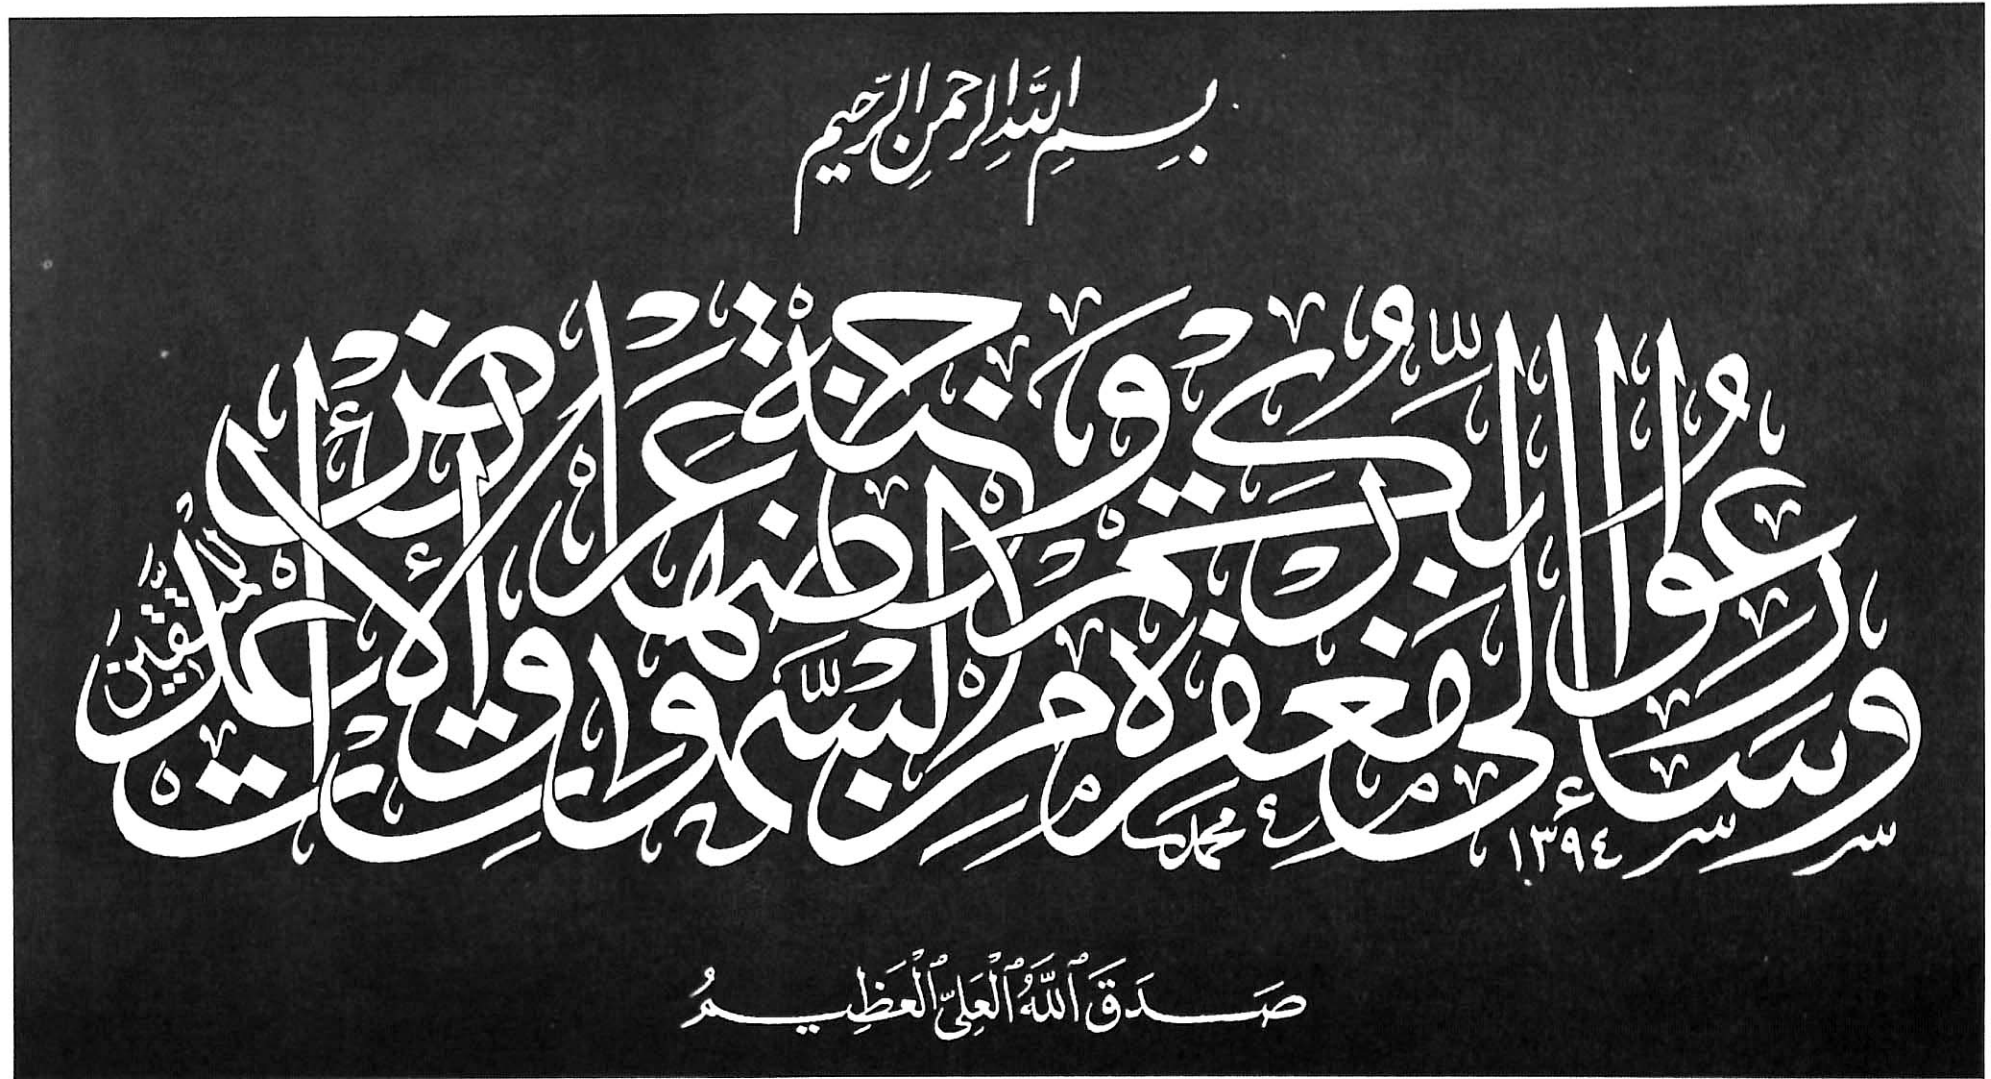 بِسمِ اللّٰهِ الرحمنِ الرَّحيم
وسارعوا إلى مغفرة من ربكم وجنة عرضها السموات والأرض أعدت للمتقين
محمد ١٣٩٤
صَدَقَ ٱللَّهُ ٱلْعَلِيّ ٱلْعَظِيمُ